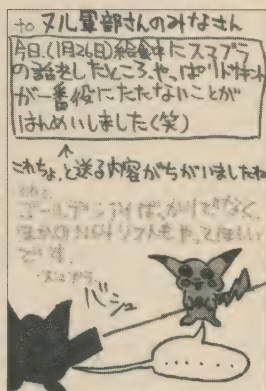 to ヌル軍部さんのみなさん
今日、(1月26日)給食中にスマブラ
の話をしたところ、やっぱ
が一番役にたたないことが
はんめいしました(笑)
↑
これちょっと送る内容がちがいましたね
ゴールデンアイばっかりでなく、
ほかの N64ソフトもやってほしい
です。
スマブラ
バシュ
......